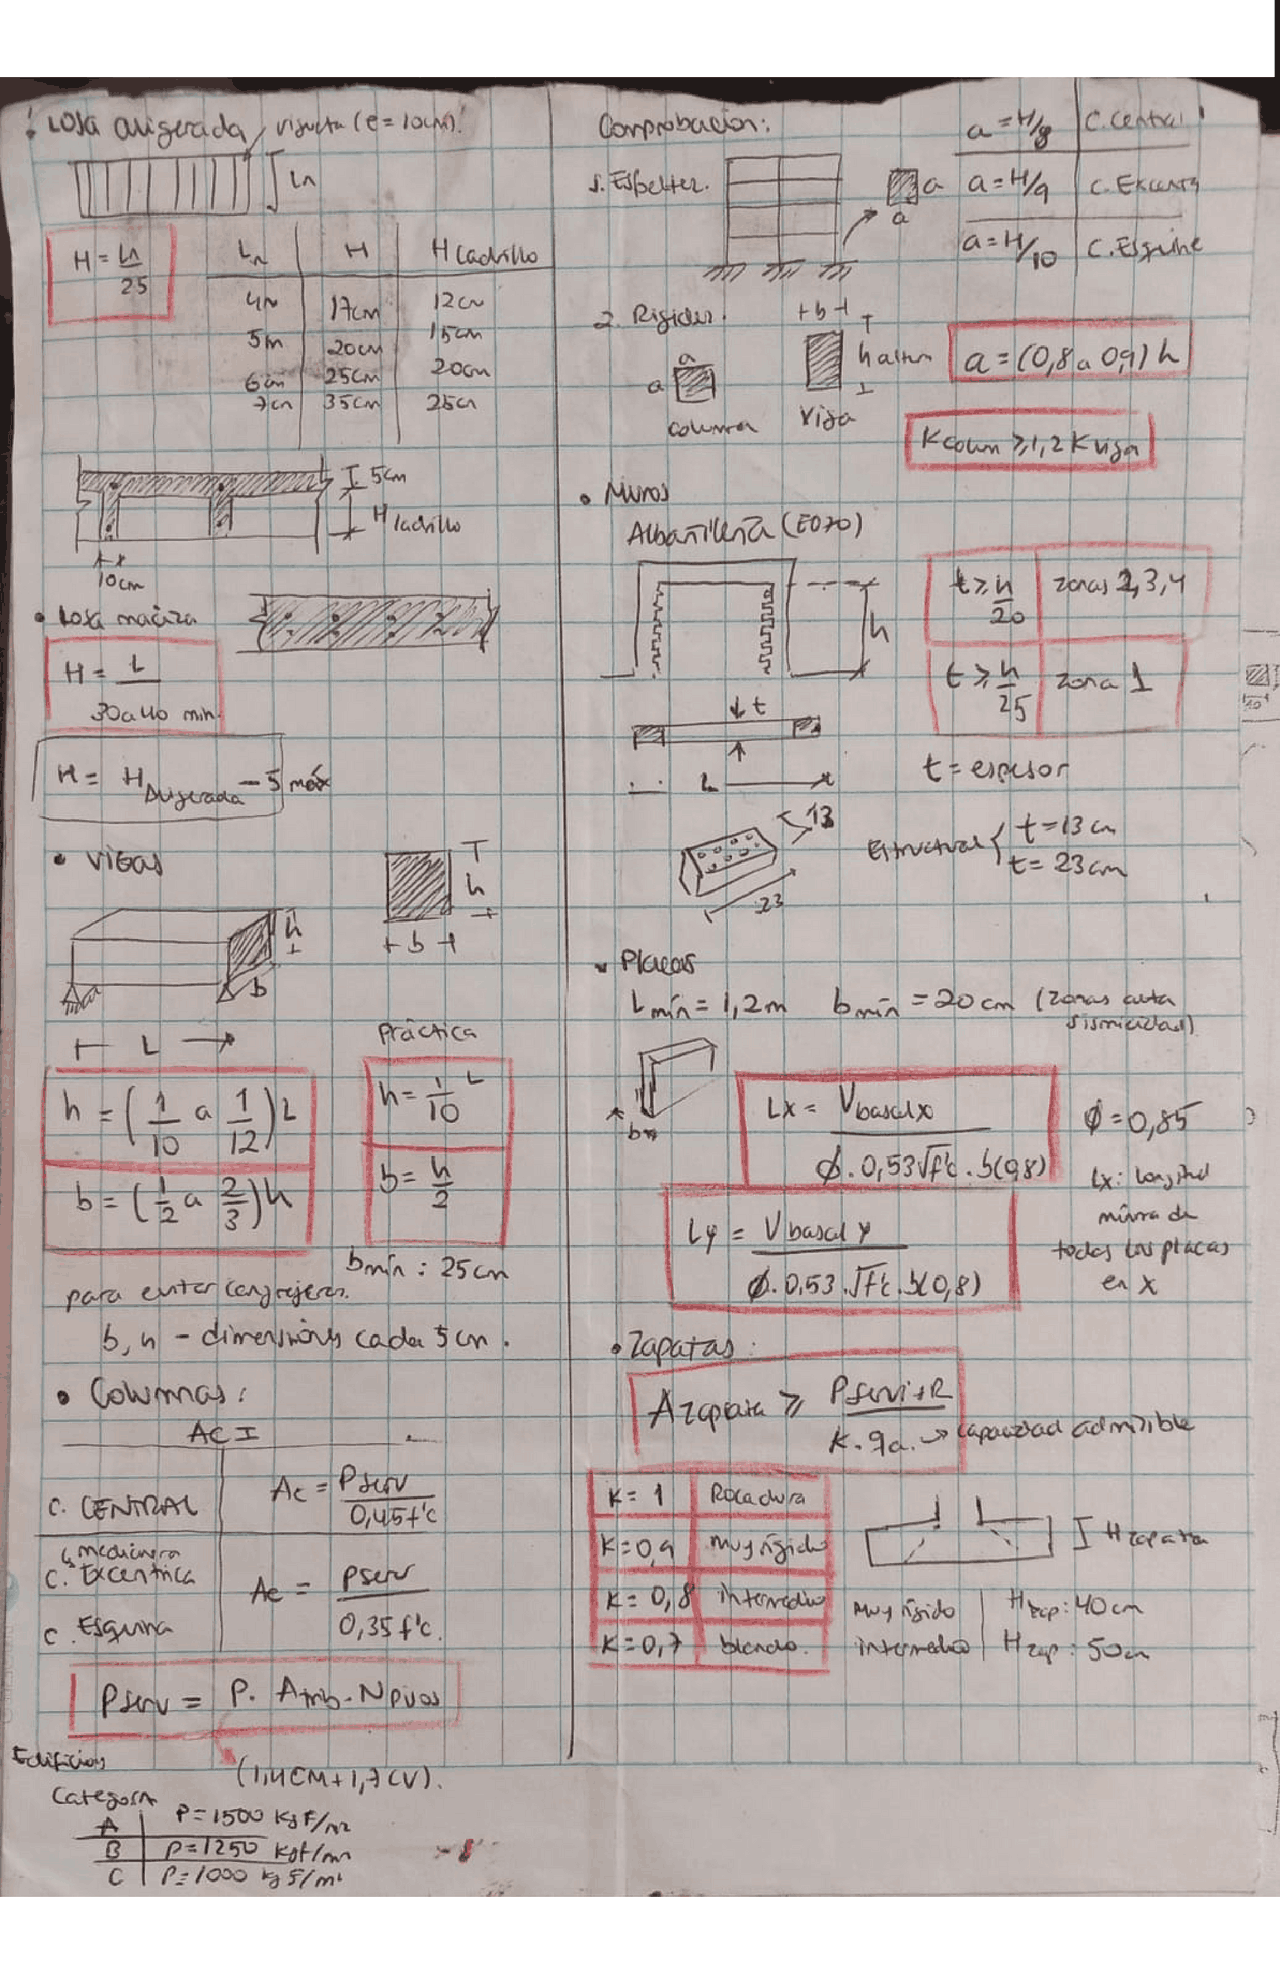 Losa aligerada, vigueta (e = 10cm).
Ln
H = Ln/25
Ln | H | H Ladrillo
4m | 17cm | 12cm
5m | 20cm | 15cm
6m | 25cm | 20cm
7m | 35cm | 25cm
5cm
H ladrillo
10cm
• Losa maciza
H = L/30 a 40 min.
H = H Aligerada - 5 máx
• VIGAS
h
b
h
b
L
Práctica
h = (1/10 a 1/12) L
h = 1/10 L
b = (1/2 a 2/3) h
b = h/2
b mín : 25cm
para evitar cangrejeras.
b, h - dimensiones cada 5cm.
• Columnas:
ACI
C. CENTRAL | Ac = Pserv/0,45f'c
C. Excéntrica | Ac = Pserv/0,35f'c.
C. Esquina
Pserv = P. Atrib. N pisos
(1,4CM+1,7CV).
Edificios
Categoría
A | P=1500 kgf/m2
B | P=1250 kgf/m2
C | P=1000 kgf/m2
Comprobación:
1. Esbeltez.
a
a
a = H/8 | C. Central
a = H/9 | C. Excent
a = H/10 | C. Esquine
2. Rigidez.
a
a
columna
b
h altura
Viga
a = (0,8 a 0,9) h
K colum ≥ 1,2 K viga
• Muros
Albañilería (E070)
h
t ≥ h/20 | zonas 2,3,4
t ≥ h/25 | zona 1
t
L
t = espesor
13
23
Estructural { t = 13cm
t = 23cm
• Placas
L mín = 1,2m b mín = 20cm (zonas alta
sismicidad)
b
Lx = V basal x / ø . 0,53√f'c . b(0,8)
ø = 0,85
Ly = V basal y / ø . 0,53 . √f'c . b(0,8)
Lx: longitud
mínima de
todas las placas
en X
• Zapatas:
A zapata ≥ Pserv / K. qa. → capacidad admisible
K = 1 | Roca dura
K = 0,9 | muy rígido
K = 0,8 | intermedio
K = 0,7 | blando.
H zapata
Muy rígido | H zap: 40cm
intermedio | H zap: 50cm